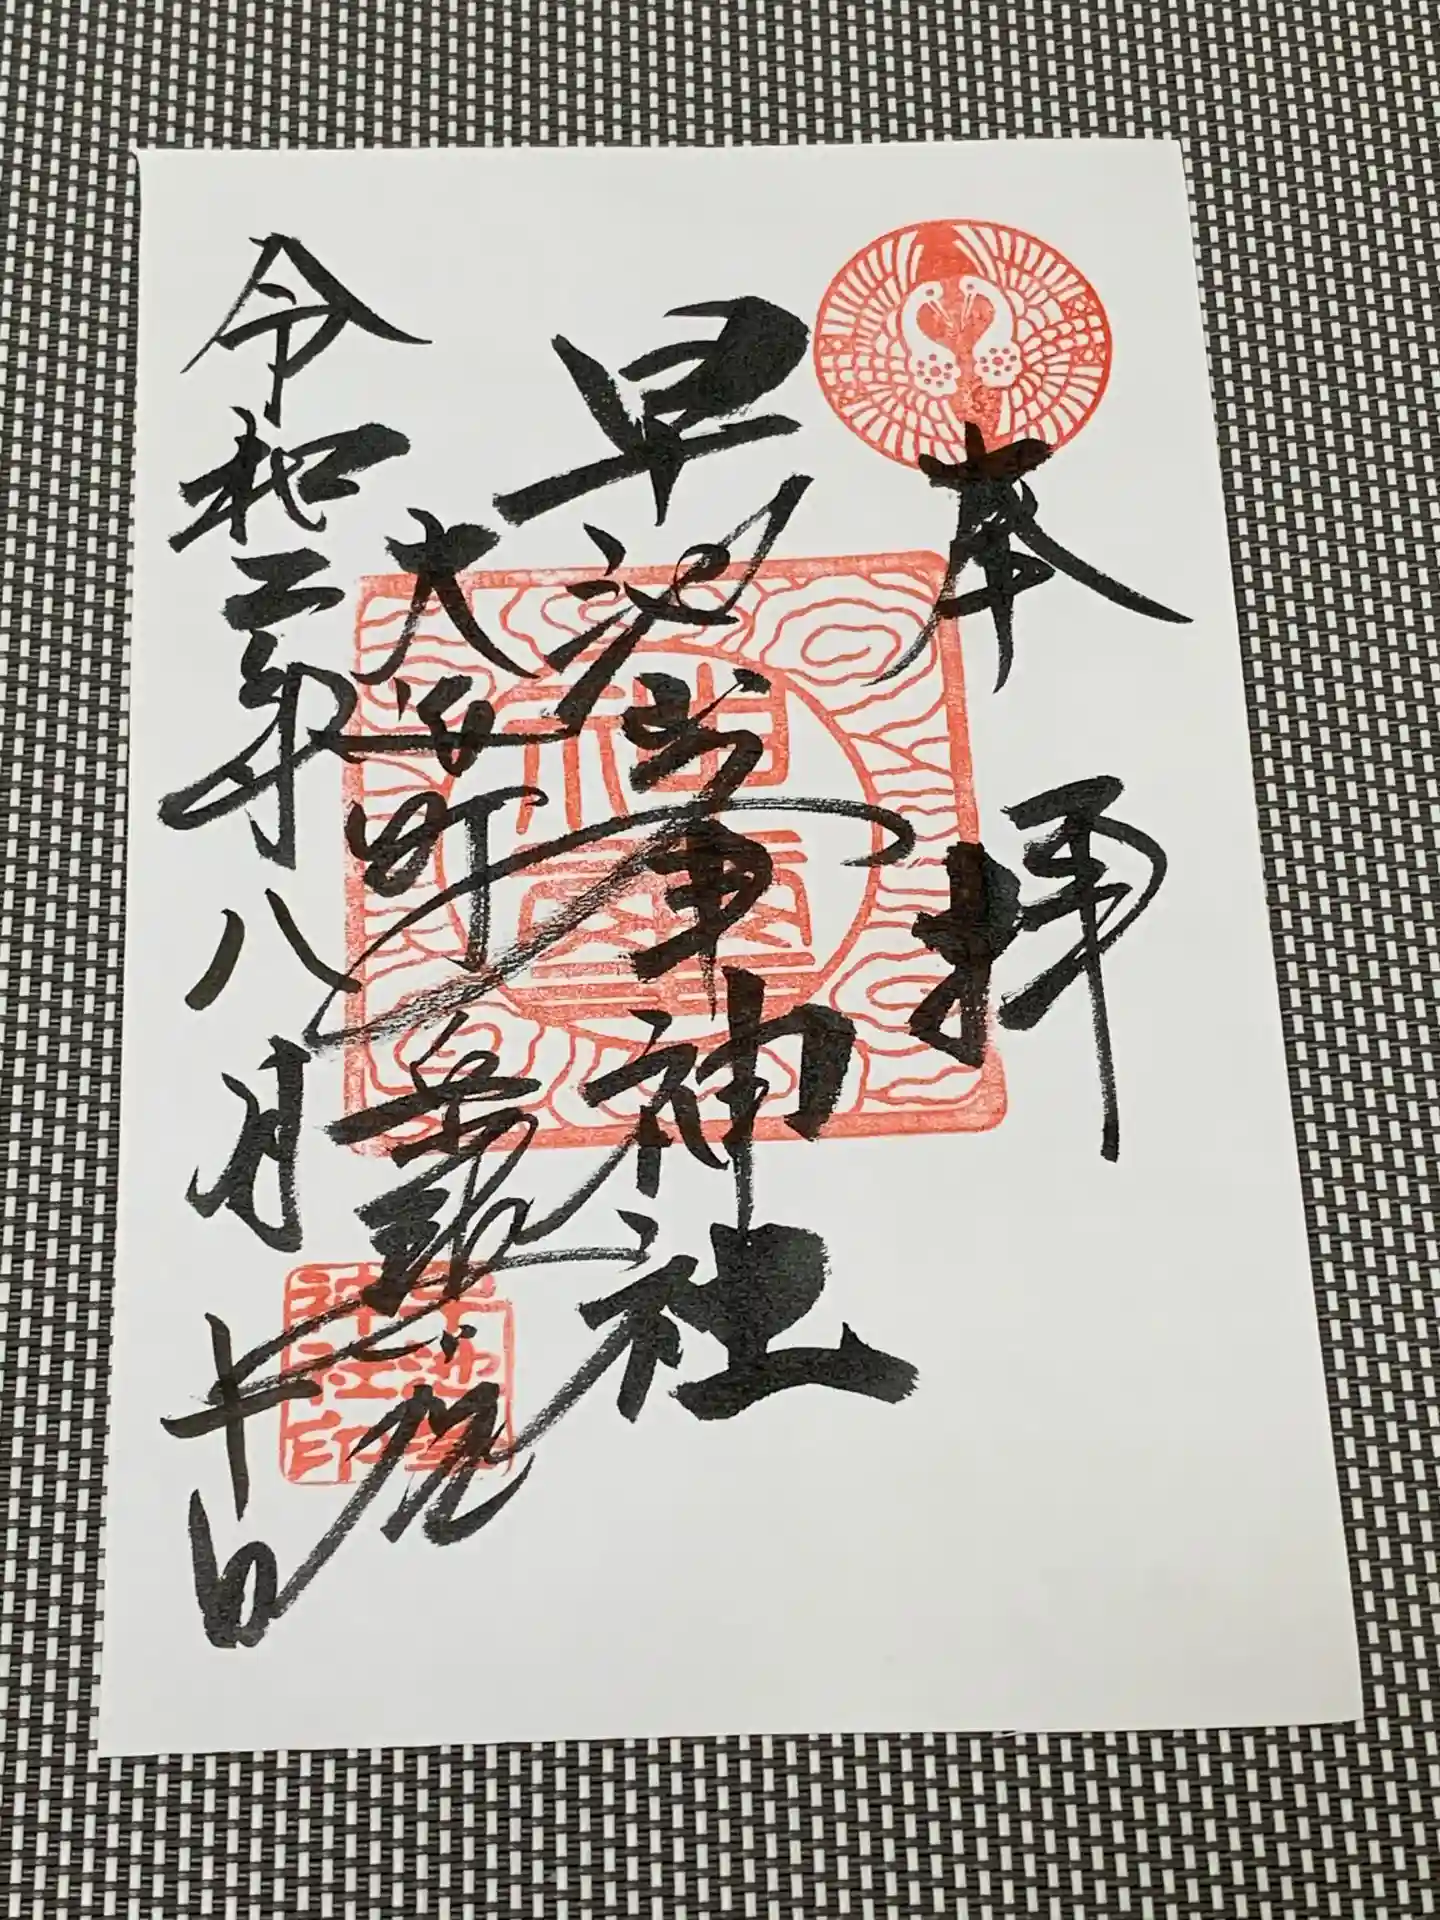 奉拝
早池峯神社
大迫町岳
令和二年八月十日
早池峯
神社印